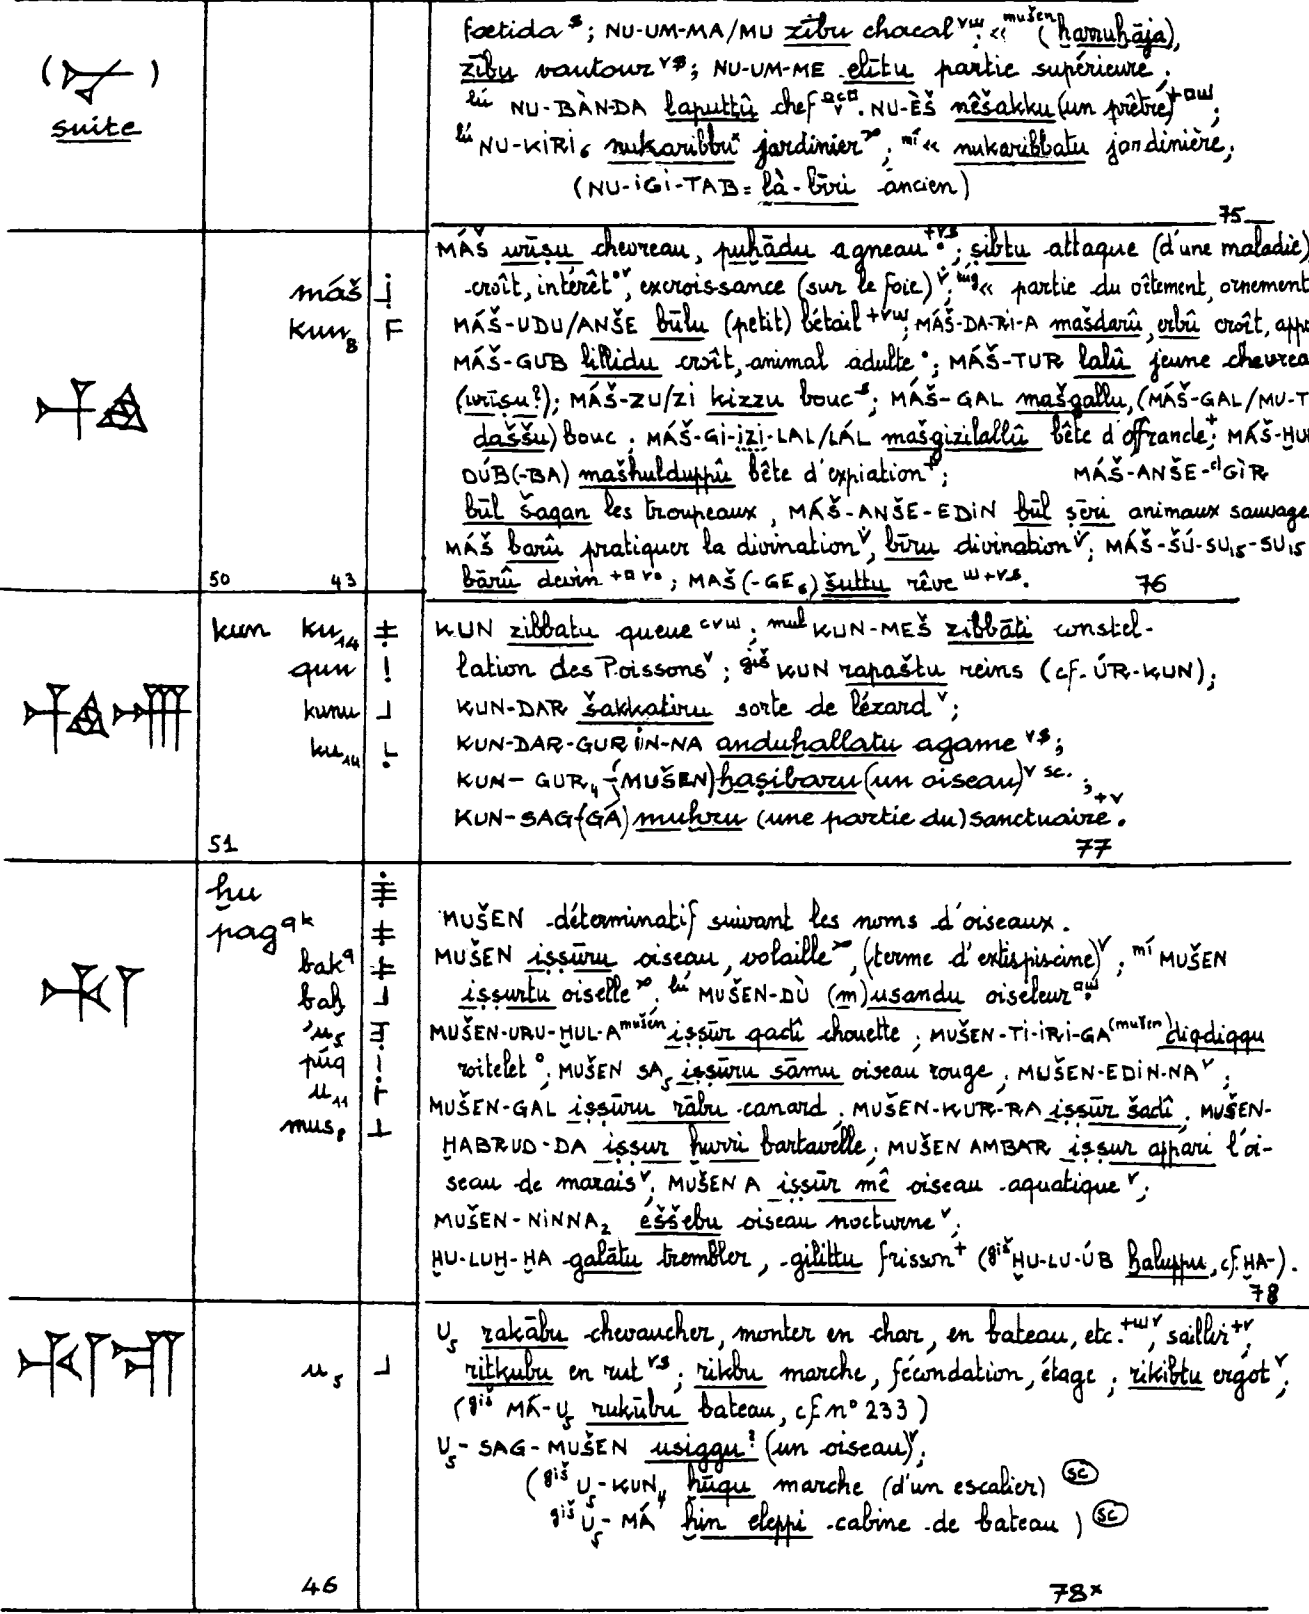 ( ) suite
fœtida ; NU-UM-MA/MU zību chacal ; « mušen (ḫarruḫāja),
zību vautour ; NU-UM-ME elītu partie supérieure ;
lú NU-BÀN-DA laputtû chef . NU-ÈŠ nêšakku (un prêtre) ;
lú NU-KIRI₆ nukaribbu jardinier ; mí « nukaribbatu jardinière,
(NU-IGI-TAB = là-bīri ancien)
75
MÁŠ urīṣu chevreau, puḫādu agneau ; ṣibtu attaque (d'une maladie)
máš croît, intérêt, excroissance (sur le foie) ; túg « partie du vêtement, ornement
kun₈ MÁŠ-UDU/ANŠE būlu (petit) bétail ; MÁŠ-DA-RI-A mašdarû, erbû croît,
MÁŠ-GUB lillidu croît, animal adulte ; MÁŠ-TUR lalû jeune
(urīṣu?); MÁŠ-ZU/ZI kizzu bouc ; MÁŠ-GAL mašgallu, (MÁŠ-GAL/MU-
daššu) bouc ; MÁŠ-GI-IZI-LAL/LÁL mašgizilallû bête d'offrande ; MÁŠ-
DÚB(-BA) mašḫulduppû bête d'expiation ; MÁŠ-ANŠE-d GÌR
būl šaqan les troupeaux, MÁŠ-ANŠE-EDIN būl ṣēri animaux sauvage
MÁŠ barû pratiquer la divination, bīru divination ; MÁŠ-ŠÚ-SU₁₅-SU₁₅
50 43 bārû devin ; MAŠ(-GE₆) šuttu rêve . 76
kun ku₁₄ KUN zibbatu queue ; mul KUN-MEŠ zibbāti constel-
qun lation des Poissons ; giš KUN rapaštu reins (cf. ÚR-KUN);
kunu KUN-DAR šakkatiru sorte de lézard ;
KUN-DAR-GURIN-NA anduḫallatu agame ;
KUN-GUR₄-(MUŠEN) ḫaṣibaru (un oiseau) sc. ;
KUN-SAG(GÁ) muḫru (une partie du) sanctuaire.
51 77
ḫu
pag qk MUŠEN déterminatif suivant les noms d'oiseaux.
bak q MUŠEN iṣṣūru oiseau, volaille, (terme d'extispicine) ; mí MUŠEN
baḫ iṣṣurtu oiselle ; lú MUŠEN-DÙ (m)usandu oiseleur
'u₅ MUŠEN-URU-ḪUL-A mušen iṣṣūr qadî chouette ; MUŠEN-TI-IRI-GA (mušen) diqdiqqu
púq roitelet ; MUŠEN SA₅ iṣṣūru sāmu oiseau rouge ; MUŠEN-EDIN-NA ;
u₁₁ MUŠEN-GAL iṣṣūru rābu canard ; MUŠEN-KUR-RA iṣṣūr šadî ; MUŠEN-
mus₈ ḪABRUD-DA iṣṣur ḫurri bartavelle ; MUŠEN AMBAR iṣṣur appari l'oi-
seau de marais ; MUŠEN A iṣṣūr mê oiseau aquatique ;
MUŠEN-NINNA₂ eššebu oiseau nocturne ;
ḪU-LUḪ-ḪA galātu trembler, gilittu frisson (giš ḪU-LU-ÚB ḫaluppu, cf. ḪA-).
78
U₅ rakābu chevaucher, monter en char, en bateau, etc. , saillir ;
u₅ ritkubu en rut ; rikbu marche, fécondation, étage ; rikibtu ergot ;
(giš MÁ-U₅ rukūbu bateau, cf n° 233)
U₅-SAG-MUŠEN usiggu? (un oiseau) ;
(giš U₅-KUN₄ ḫūqu marche (d'un escalier) sc
giš U₅-MÁ ḫin eleppi cabine de bateau ) sc
46 78x